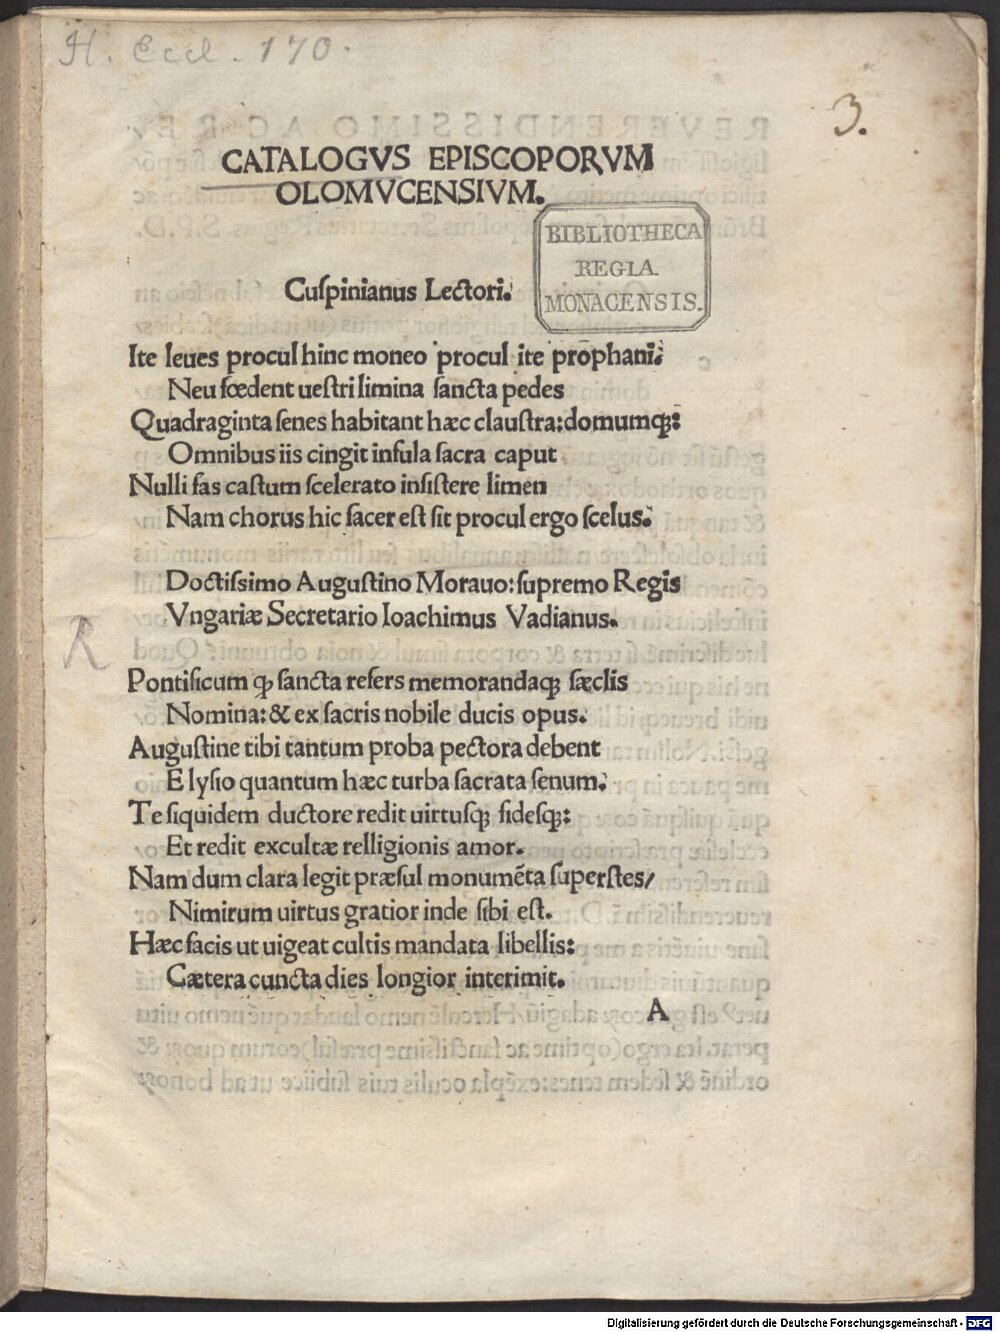 H. Eccl. 170.
3.
CATALOGVS EPISCOPORVM
OLOMVCENSIVM.
BIBLIOTHECA
REGIA
MONACENSIS.
Cuſpinianus Lectori.
Ite leues procul hinc moneo procul ite prophani.
Neu fœdent ueſtri limina ſancta pedes
Quadraginta ſenes habitant hæc clauſtra: domumqꝫ:
Omnibus iis cingit inſula ſacra caput
Nulli fas caſtum ſcelerato inſiſtere limen
Nam chorus hic ſacer eſt ſit procul ergo ſcelus.
Doctiſsimo Auguſtino Morauo: ſupremo Regis
Vngariæ Secretario Ioachimus Vadianus.
R
Pontificum qꝫ ſancta refers memorandaqꝫ ſæclis
Nomina: & ex ſacris nobile ducis opus.
Auguſtine tibi tantum proba pectora debent
Elyſio quantum hæc turba ſacrata ſenum.
Te ſiquidem ductore redit uirtuſqꝫ fideſqꝫ:
Et redit excultæ relligionis amor.
Nam dum clara legit præſul monumēta ſuperſtes/
Nimirum uirtus gratior inde ſibi eſt.
Hæc facis ut uigeat cultis mandata libellis:
Cætera cuncta dies longior interimit.
A
Digitalisierung gefördert durch die Deutsche Forschungsgemeinschaft - DFG